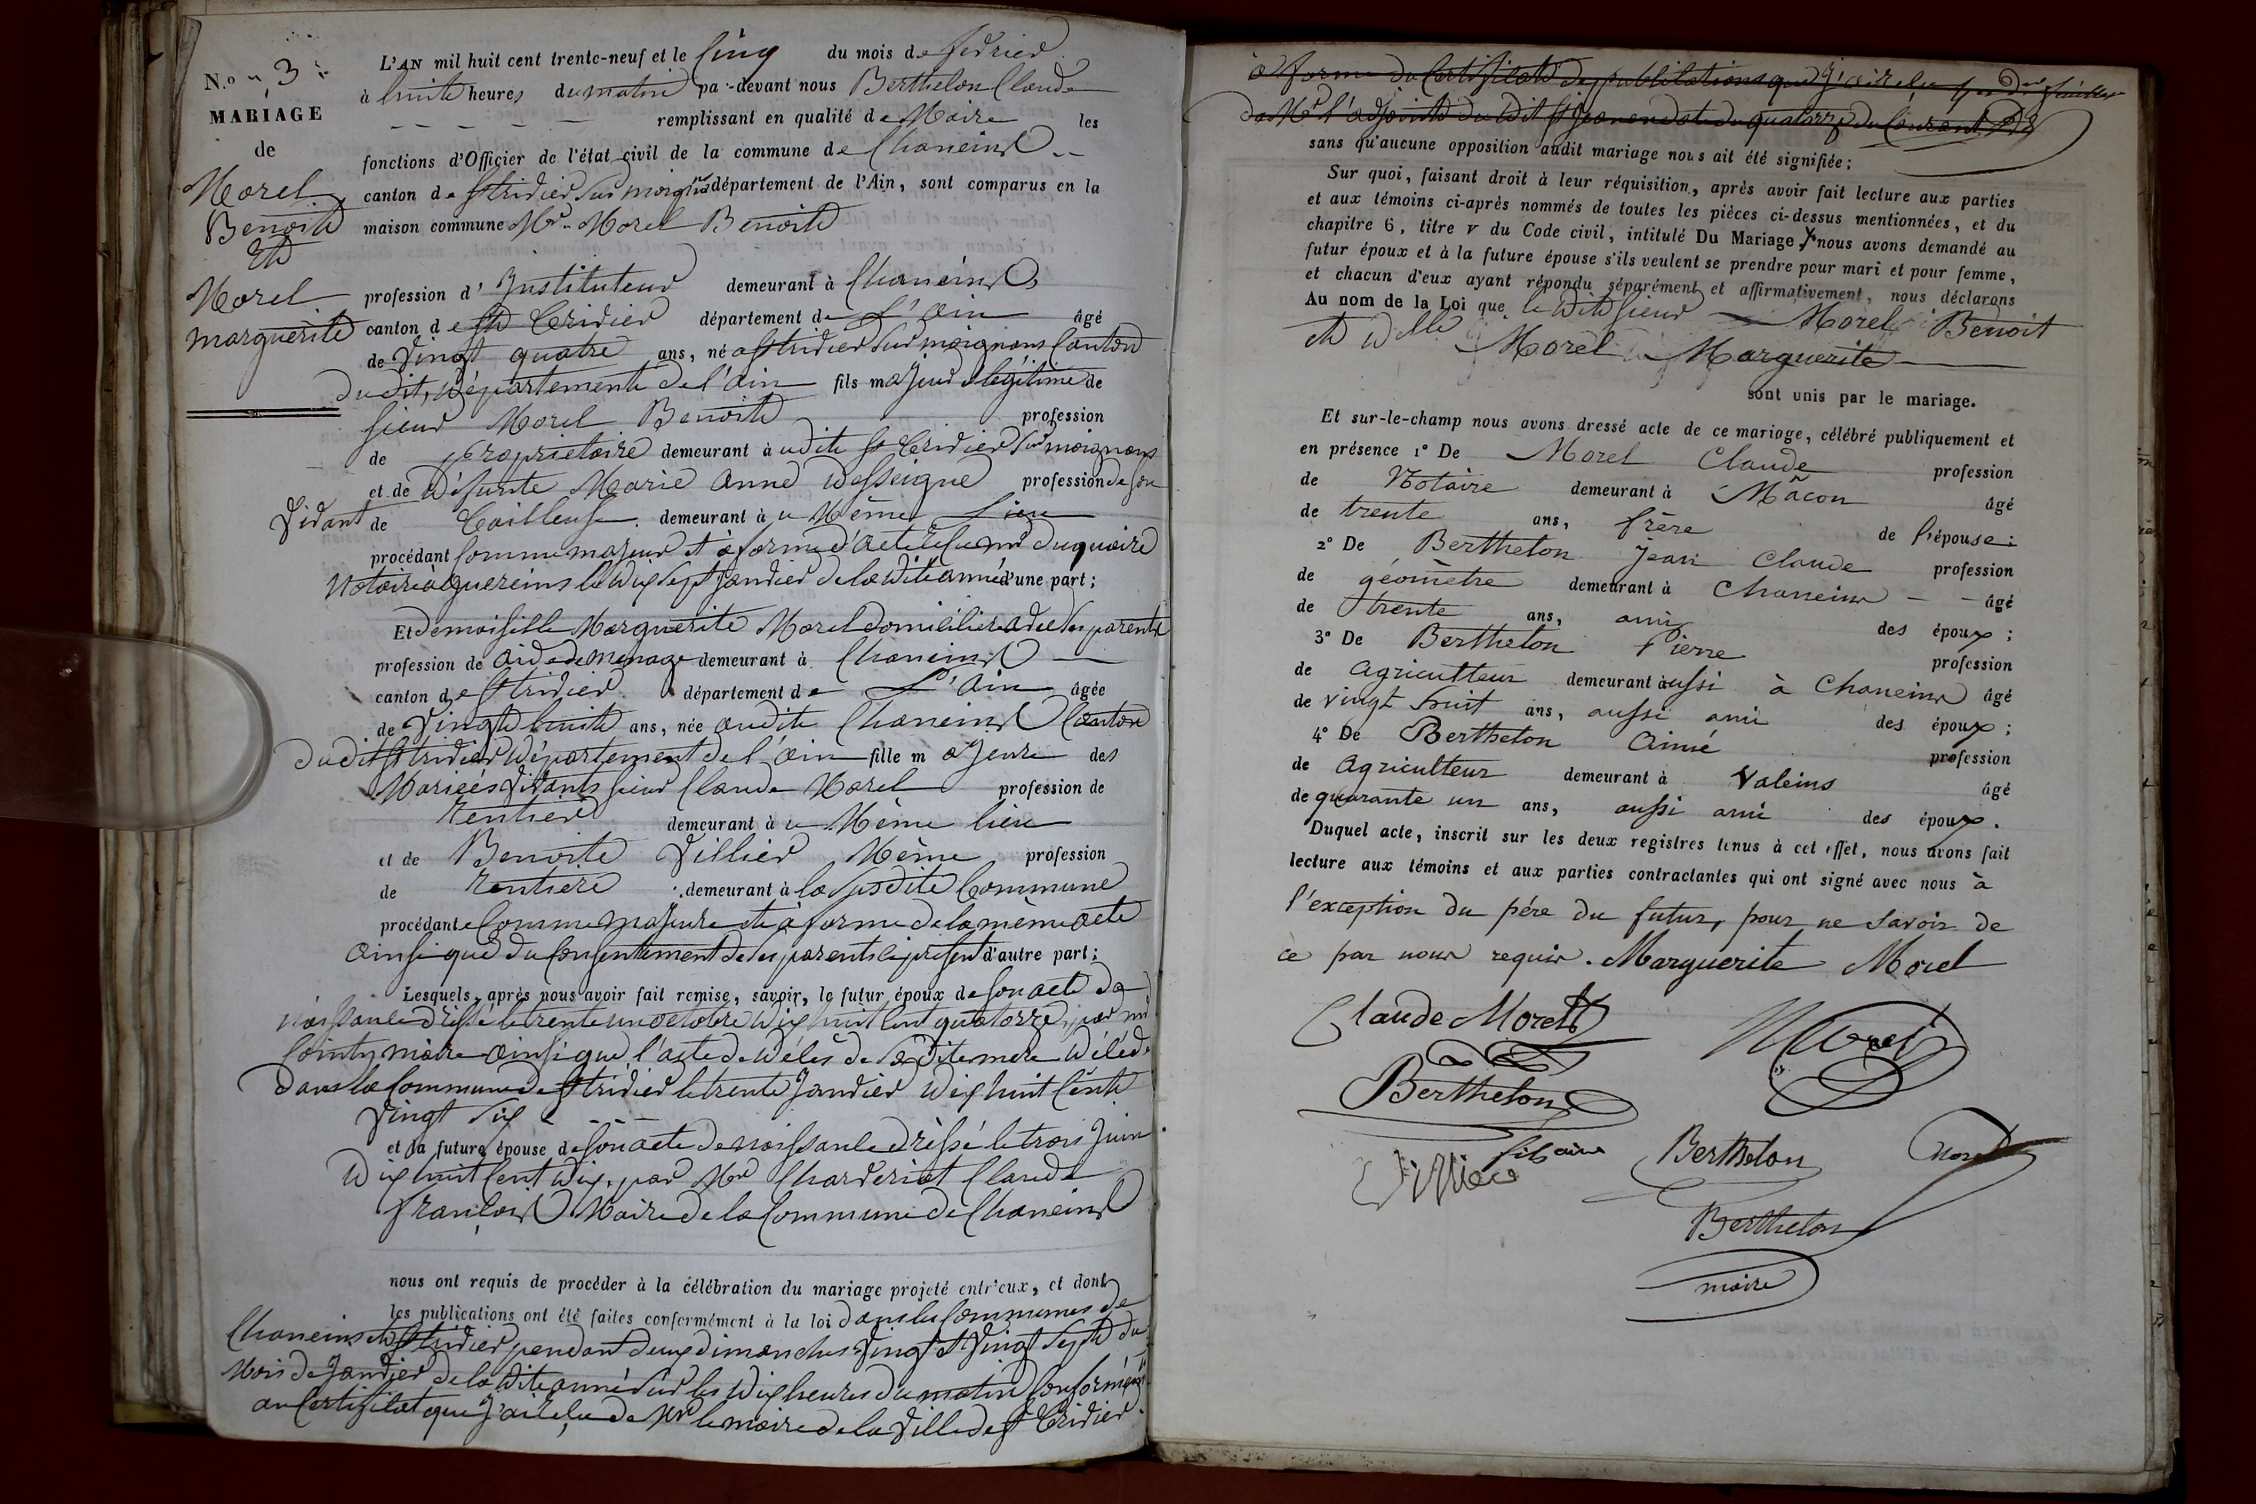 N.o " 3 "
MARIAGE
de
Morel
Benoit
Et
Morel
marguerite
L'AN mil huit cent trente-neuf et le Cinq du mois de fevrier
à huit heures du matin par-devant nous Berthelon Claude
remplissant en qualité de Maire les
fonctions d'Officier de l'état civil de la commune de Chaneins
canton de St trivier sur moignans département de l'Ain, sont comparus en la
maison commune Mr Morel Benoit
profession d' Instituteur demeurant à Chaneins
canton de St Trivier département de L'ain âgé
de Vingt quatre ans, né a St trivier sur moignans Canton
dudit, département de l'ain fils majeur & legitime de
sieur Morel Benoit profession
de propriétaire demeurant à udit St Trivier sur moignans
et de Défunte Marie Anne Desseigne profession de son
Vivant de Tailleuse demeurant à u Même Lieu
procédant Comme majeur et à forme d'acte reçu mr duquaire
Notaire à guereins le dix sept Janvier de la dite année d'une part;
Et demoiselle Marguerite Morel domiciliée avec ses parents
profession de aide de menage demeurant à Chaneins
canton de St trivier département de L'Ain âgée
de Vingt huit ans, née audit Chaneins Canton
dudit St trivier département de l'ain fille majeure des
Mariés Vivants sieur Claude Morel profession de
rentier demeurant à u Même lieu
et de Benoite Villier Même profession
de rentiere demeurant à la susdite Commune
procédante Comme majeure et à forme de la même acte
ainsi que du Consentement de ses parents ci présent d'autre part;
Lesquels, après nous avoir fait remise, savoir, le futur époux de son acte de
naissance dréssé le trente un octobre dix huit cent quatorze, par mr
maire ainsi que l'acte de décés de sa dite mere décédé
dans la Commune de St trivier le trente Janvier dix huit Cent
Vingt six
et la future épouse de son acte de naissance dréssé le trois Juin
dix huit Cent dix, par Mr Charderiat Claude
françois Maire de la Commune de Chaneins
nous ont requis de procéder à la célébration du mariage projeté entr'eux, et dont
les publications ont été faites conformément à la loi dans les Communes de
Chaneins et St trivier pendant deux dimanches Vingt et Vingt Sept du
Mois de Janvier de la dite année sur les dix heures du matin Conformément
au Certificat que J'ai reçu de Mr le maire de la Ville de St Trivier
à forme du Certificat des publications que J'ai reçu
de Mr l'adjoint dudit St Jean en date du quatorze du Courant
sans qu'aucune opposition audit mariage nous ait été signifiée;
Sur quoi, faisant droit à leur réquisition, après avoir fait lecture aux parties
et aux témoins ci-après nommés de toutes les pièces ci-dessus mentionnées, et du
chapitre 6, titre v du Code civil, intitulé Du Mariage, nous avons demandé au
futur époux et à la future épouse s'ils veulent se prendre pour mari et pour femme,
et chacun d'eux ayant répondu séparément et affirmativement, nous déclarons
Au nom de la Loi que le dit sieur Morel Benoit
et dlle Morel Marguerite
sont unis par le mariage.
Et sur-le-champ nous avons dressé acte de ce mariage, célébré publiquement et
en présence 1° De Morel Claude profession
de Notaire demeurant à Mâcon âgé
de trente ans, frère de l'épouse;
2° De Berthelon Jean Claude profession
de géomètre demeurant à Chaneins âgé
de trente ans, ami des époux;
3° De Berthelon Pierre profession
de agriculteur demeurant aussi à Chaneins âgé
de vingt huit ans, aussi ami des époux;
4° De Berthelon Aimé profession
de agriculteur demeurant à Valeins âgé
de quarante un ans, aussi ami des époux.
Duquel acte, inscrit sur les deux registres tenus à cet effet, nous avons fait
lecture aux témoins et aux parties contractantes qui ont signé avec nous à
l'exception du pére du futur, pour ne savoir de
ce par nous requis. Marguerite Morel
Claude Morel Morel
Berthelon
fils ainé Berthelon Morel
Villier
Berthelon
maire